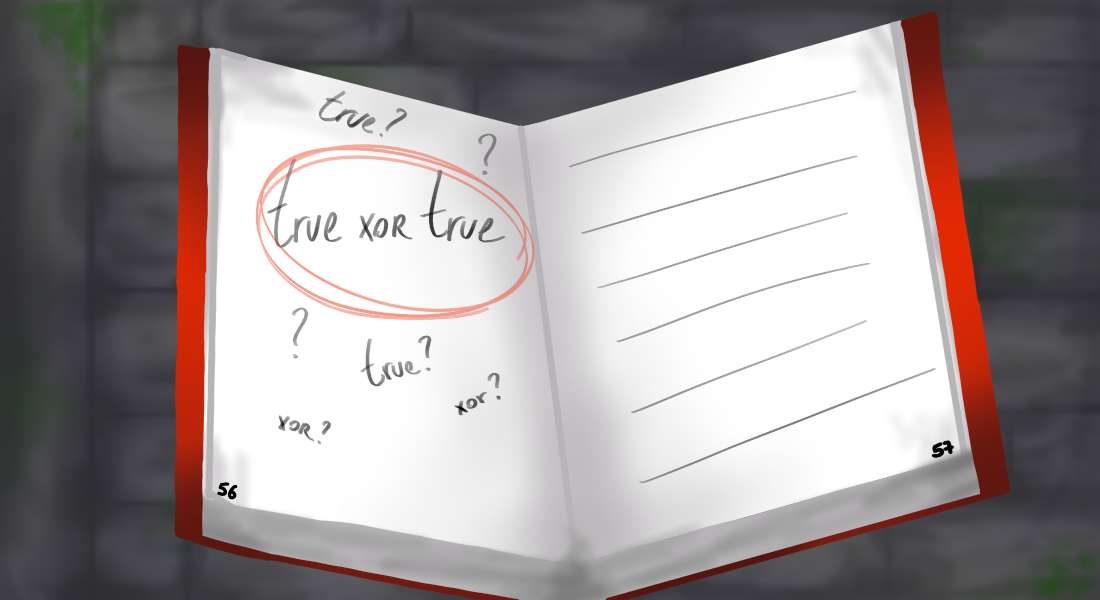 true?
?
true xor true
?
true?
xor?
xor?
56
57